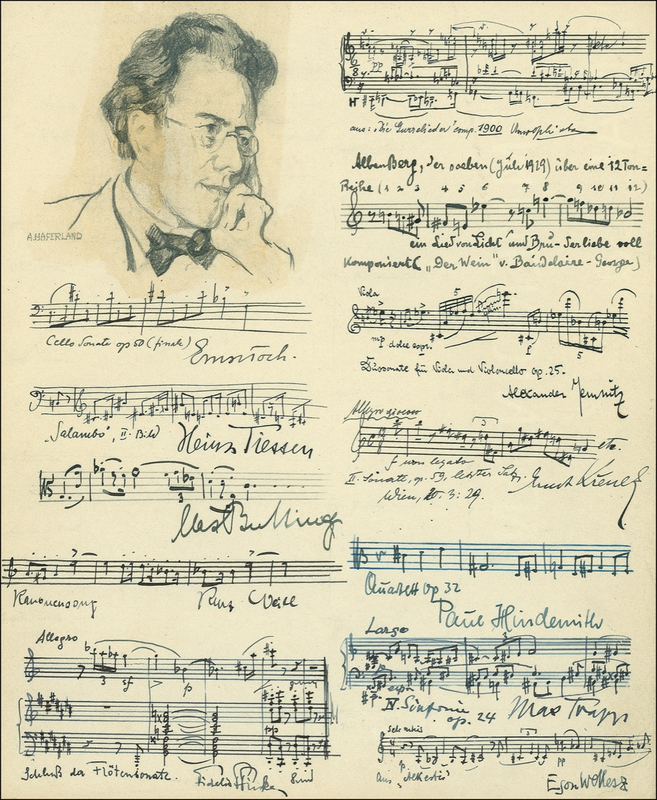 A. HAFERLAND
Cello Sonate op 50 (finale)
Ernst Toch.
„Salambo", II. Bild
Heinz Tiessen
3
Max Butting
Kanonensong
Kurt Weill
Allegro
3 sf > p
Schluß der Flötensonate.
Fidelio Finke
pp
H
aus: „die Gurrelieder" comp. 1900
Alban Berg, der soeben (Juli 1929) über eine 12 Ton=
Reihe (1 2 3 4 5 6 7 8 9 10 11 12)
ein Lied von Licht und Bru-derliebe voll
Komponiert („Der Wein" v. Baudelaire-George)
Viola
5
mp dolce espr.
5
Duosonate für Viola und Violoncello op. 25.
Alexander Jemnitz
Allegro
3
f legato
etc.
II. Sonate, op. 59, letzter Satz
Ernst Krenek
Wien, 3. 29.
Quartett op 32
Paul Hindemith
Largo
3
espr
IV. Sinfonie
op. 24
Max Trapp
p
pp
Aus „Alkestis"
Egon Wellesz